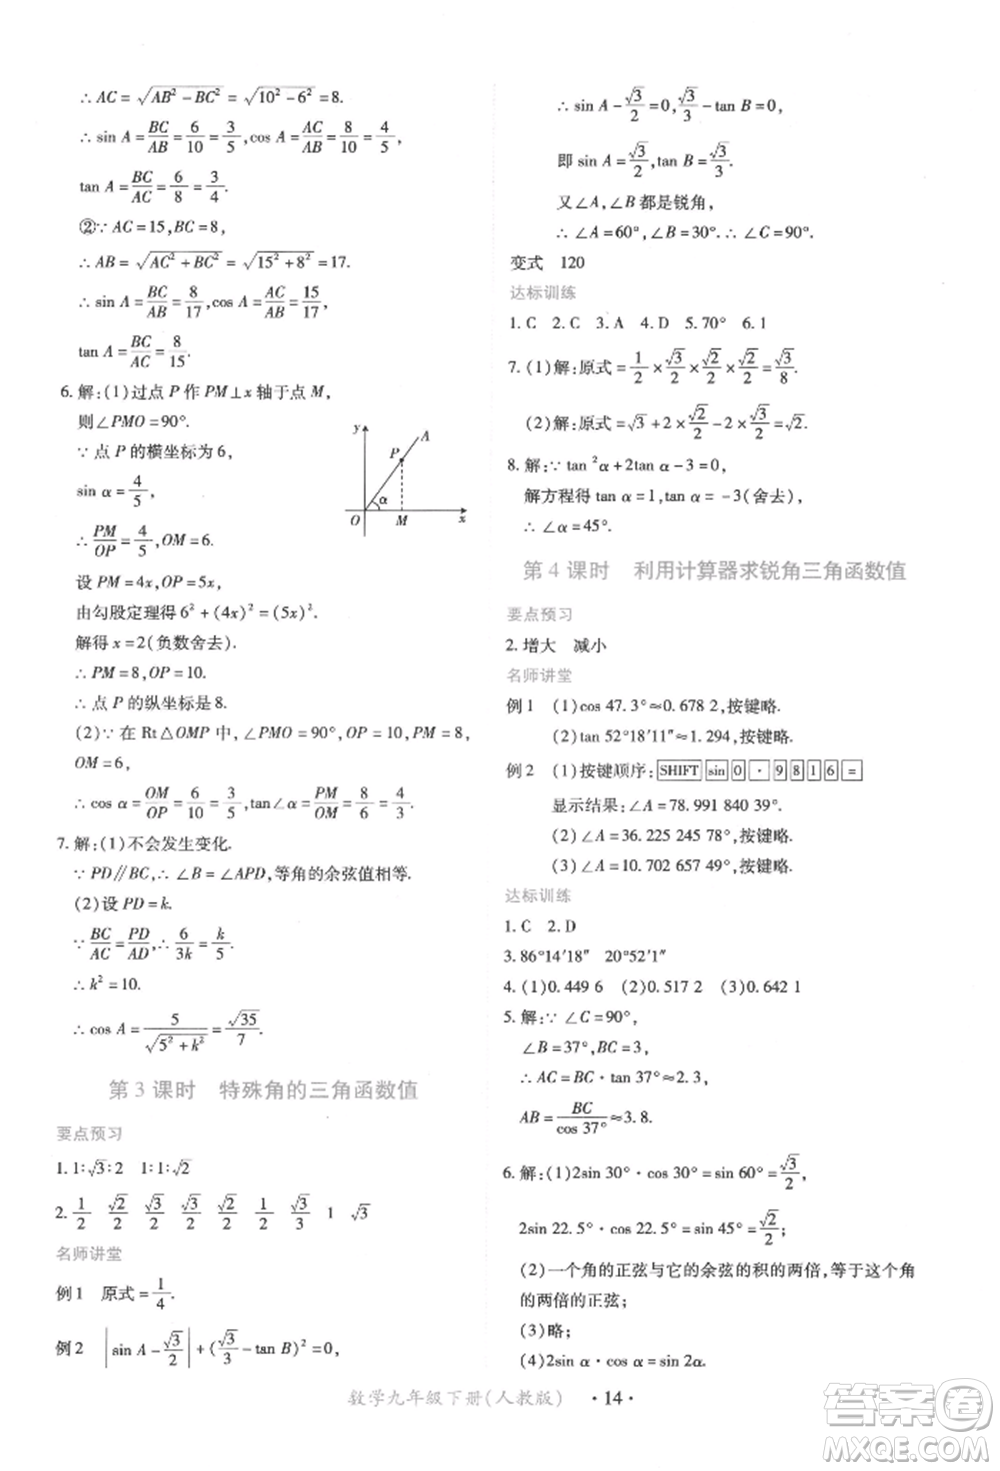 ∴AC=√(AB²-BC²)=√(10²-6²)=8.
∴sin A=BC/AB=6/10=3/5,cos A=AC/AB=8/10=4/5,
tan A=BC/AC=6/8=3/4.
②∵AC=15,BC=8,
∴AB=√(AC²+BC²)=√(15²+8²)=17.
∴sin A=BC/AB=8/17,cos A=AC/AB=15/17,
tan A=BC/AC=8/15.
6.解:(1)过点P作PM⊥x轴于点M,
则∠PMO=90°.
∵点P的横坐标为6,
sin α=4/5,
∴PM/OP=4/5,OM=6.
设PM=4x,OP=5x,
由勾股定理得6²+(4x)²=(5x)².
解得x=2(负数舍去).
∴PM=8,OP=10.
∴点P的纵坐标是8.
(2)∵在Rt△OMP中,∠PMO=90°,PM=8,
OM=6,
∴cos α=OM/OP=6/10=3/5,tan∠α=PM/OM=8/6=4/3.
y
A
P
α
O
M
x
7.解:(1)不会发生变化.
∵PD∥BC,∴∠B=∠APD,等角的余弦值相等.
(2)设PD=k.
∵BC/AC=PD/AD,∴6/3k=k/5.
∴k²=10.
∴cos A=5/√(5²+k²)=√35/7.
第3课时 特殊角的三角函数值
要点预习
1.1:√3:2 1:1:√2
2.1/2 √2/2 √3/2 √3/2 √2/2 1/2 √3/3 1 √3
名师讲堂
例1 原式=1/4.
例2 |sin A-√3/2|+(√3/3-tan B)²=0,
∴sin A-√3/2=0,√3/3-tan B=0,
即sin A=√3/2,tan B=√3/3.
又∠A,∠B都是锐角,
∴∠A=60°,∠B=30°.∴∠C=90°.
变式 120
达标训练
1.C 2.C 3.A 4.D 5.70° 6.1
7.(1)解:原式=1/2×√3/2×√2/2×√2/2=√3/8.
(2)解:原式=√3+2×√2/2-2×√3/2=√2.
8.解:∵tan²α+2tan α-3=0,
解方程得tan α=1,tan α=-3(舍去),
∴∠α=45°.
第4课时 利用计算器求锐角三角函数值
要点预习
2.增大 减小
名师讲堂
例1 (1)cos 47.3°≈0.678 2,按键略.
(2)tan 52°18′11″≈1.294,按键略.
例2 (1)按键顺序:SHIFT sin 0 · 9 8 1 6 =
显示结果:∠A=78.991 840 39°.
(2)∠A=36.225 245 78°,按键略.
(3)∠A=10.702 657 49°,按键略.
达标训练
1.C 2.D
3.86°14′18″ 20°52′1″
4.(1)0.449 6 (2)0.704 2 (3)0.642 1
5.解:∵∠C=90°,
∠B=37°,BC=3,
∴AC=BC·tan 37°≈2.3,
AB=BC/cos 37°≈3.8.
6.解:(1)2sin 30°·cos 30°=sin 60°=√3/2,
2sin 22.5°·cos 22.5°=sin 45°=√2/2;
(2)一个角的正弦与它的余弦的积的两倍,等于这个角
的两倍的正弦;
(3)略;
(4)2sin α·cos α=sin 2α.
数学九年级下册(人教版) ·14·
答案圈
MXQE.COM